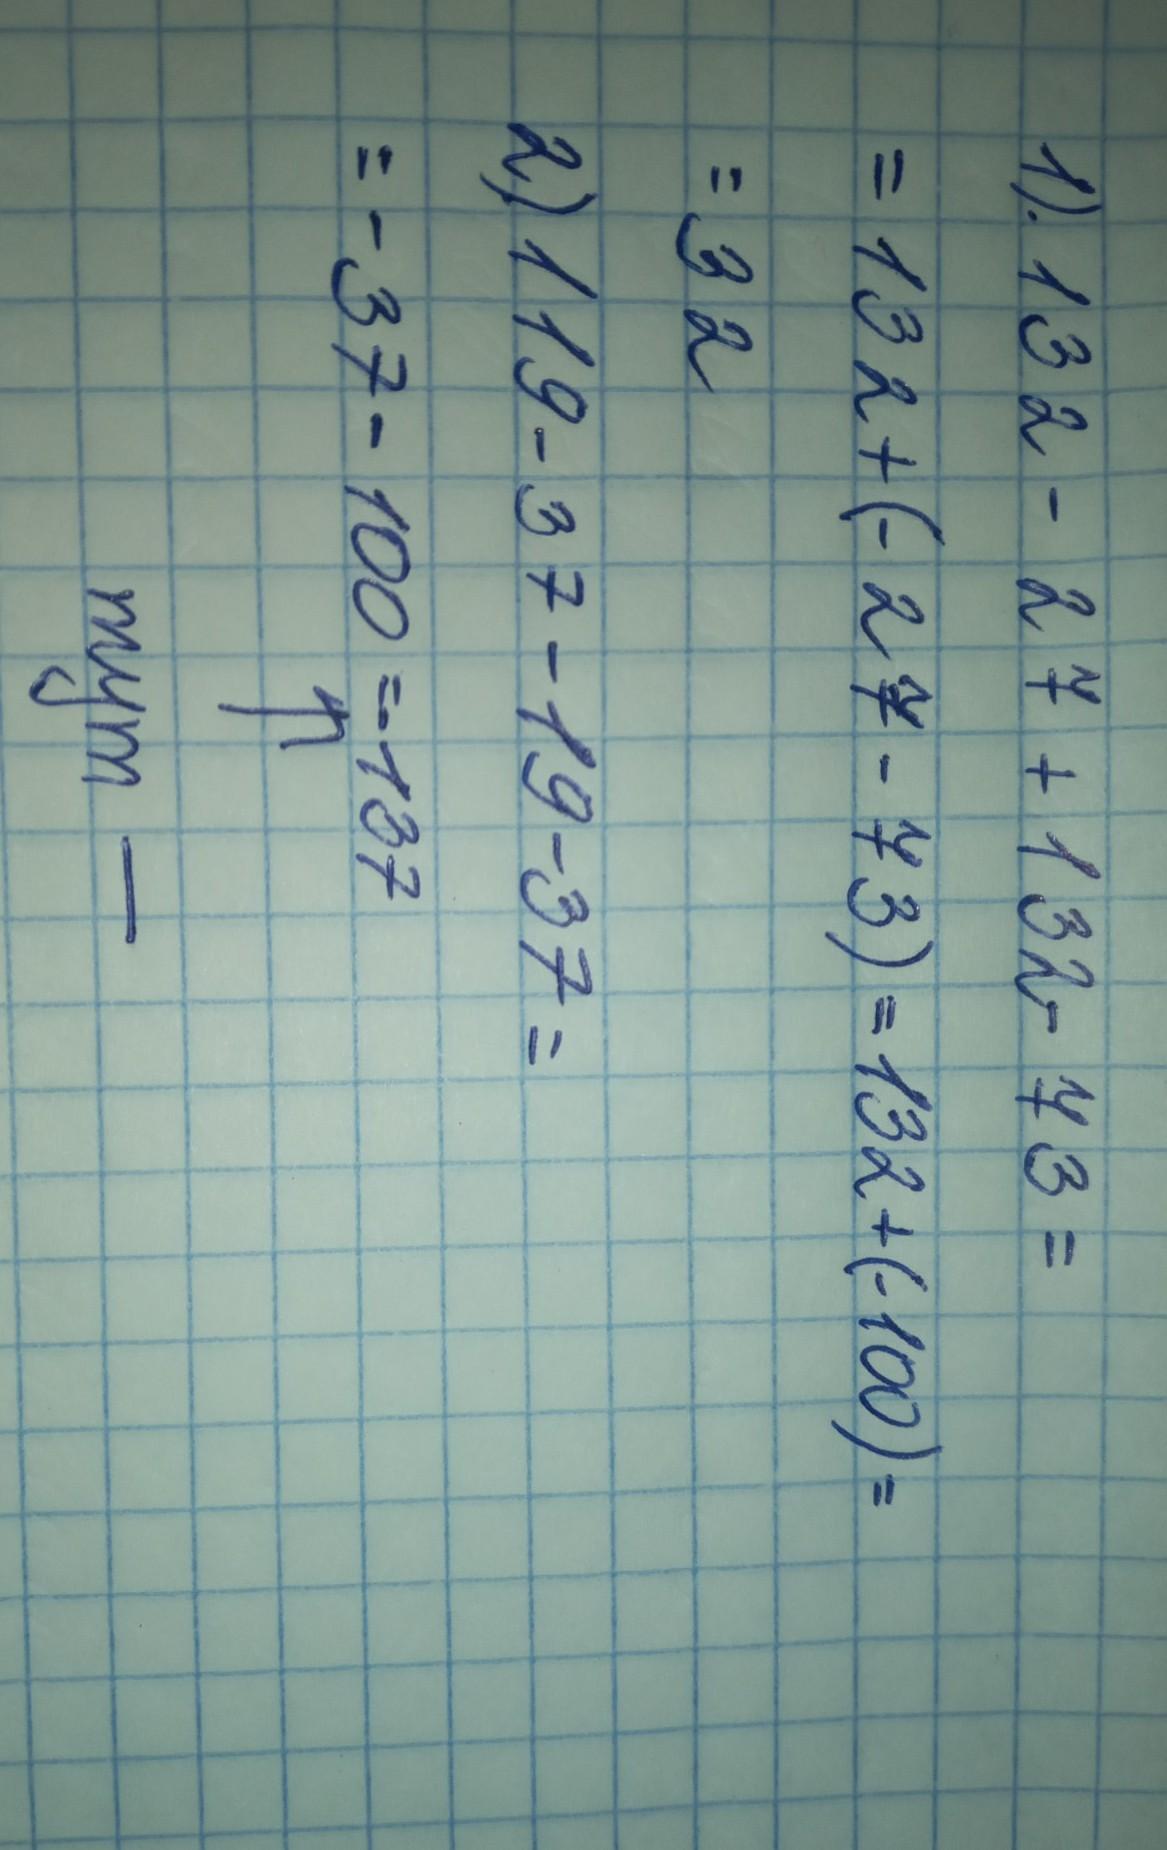 1). 132 - 27 + 132 - 73 =
= 132 + (- 27 - 73) = 132 + (-100) =
= 32
2) 119 - 37 - 19 - 37 =
= - 37 - 100 = -137
↑
тут —